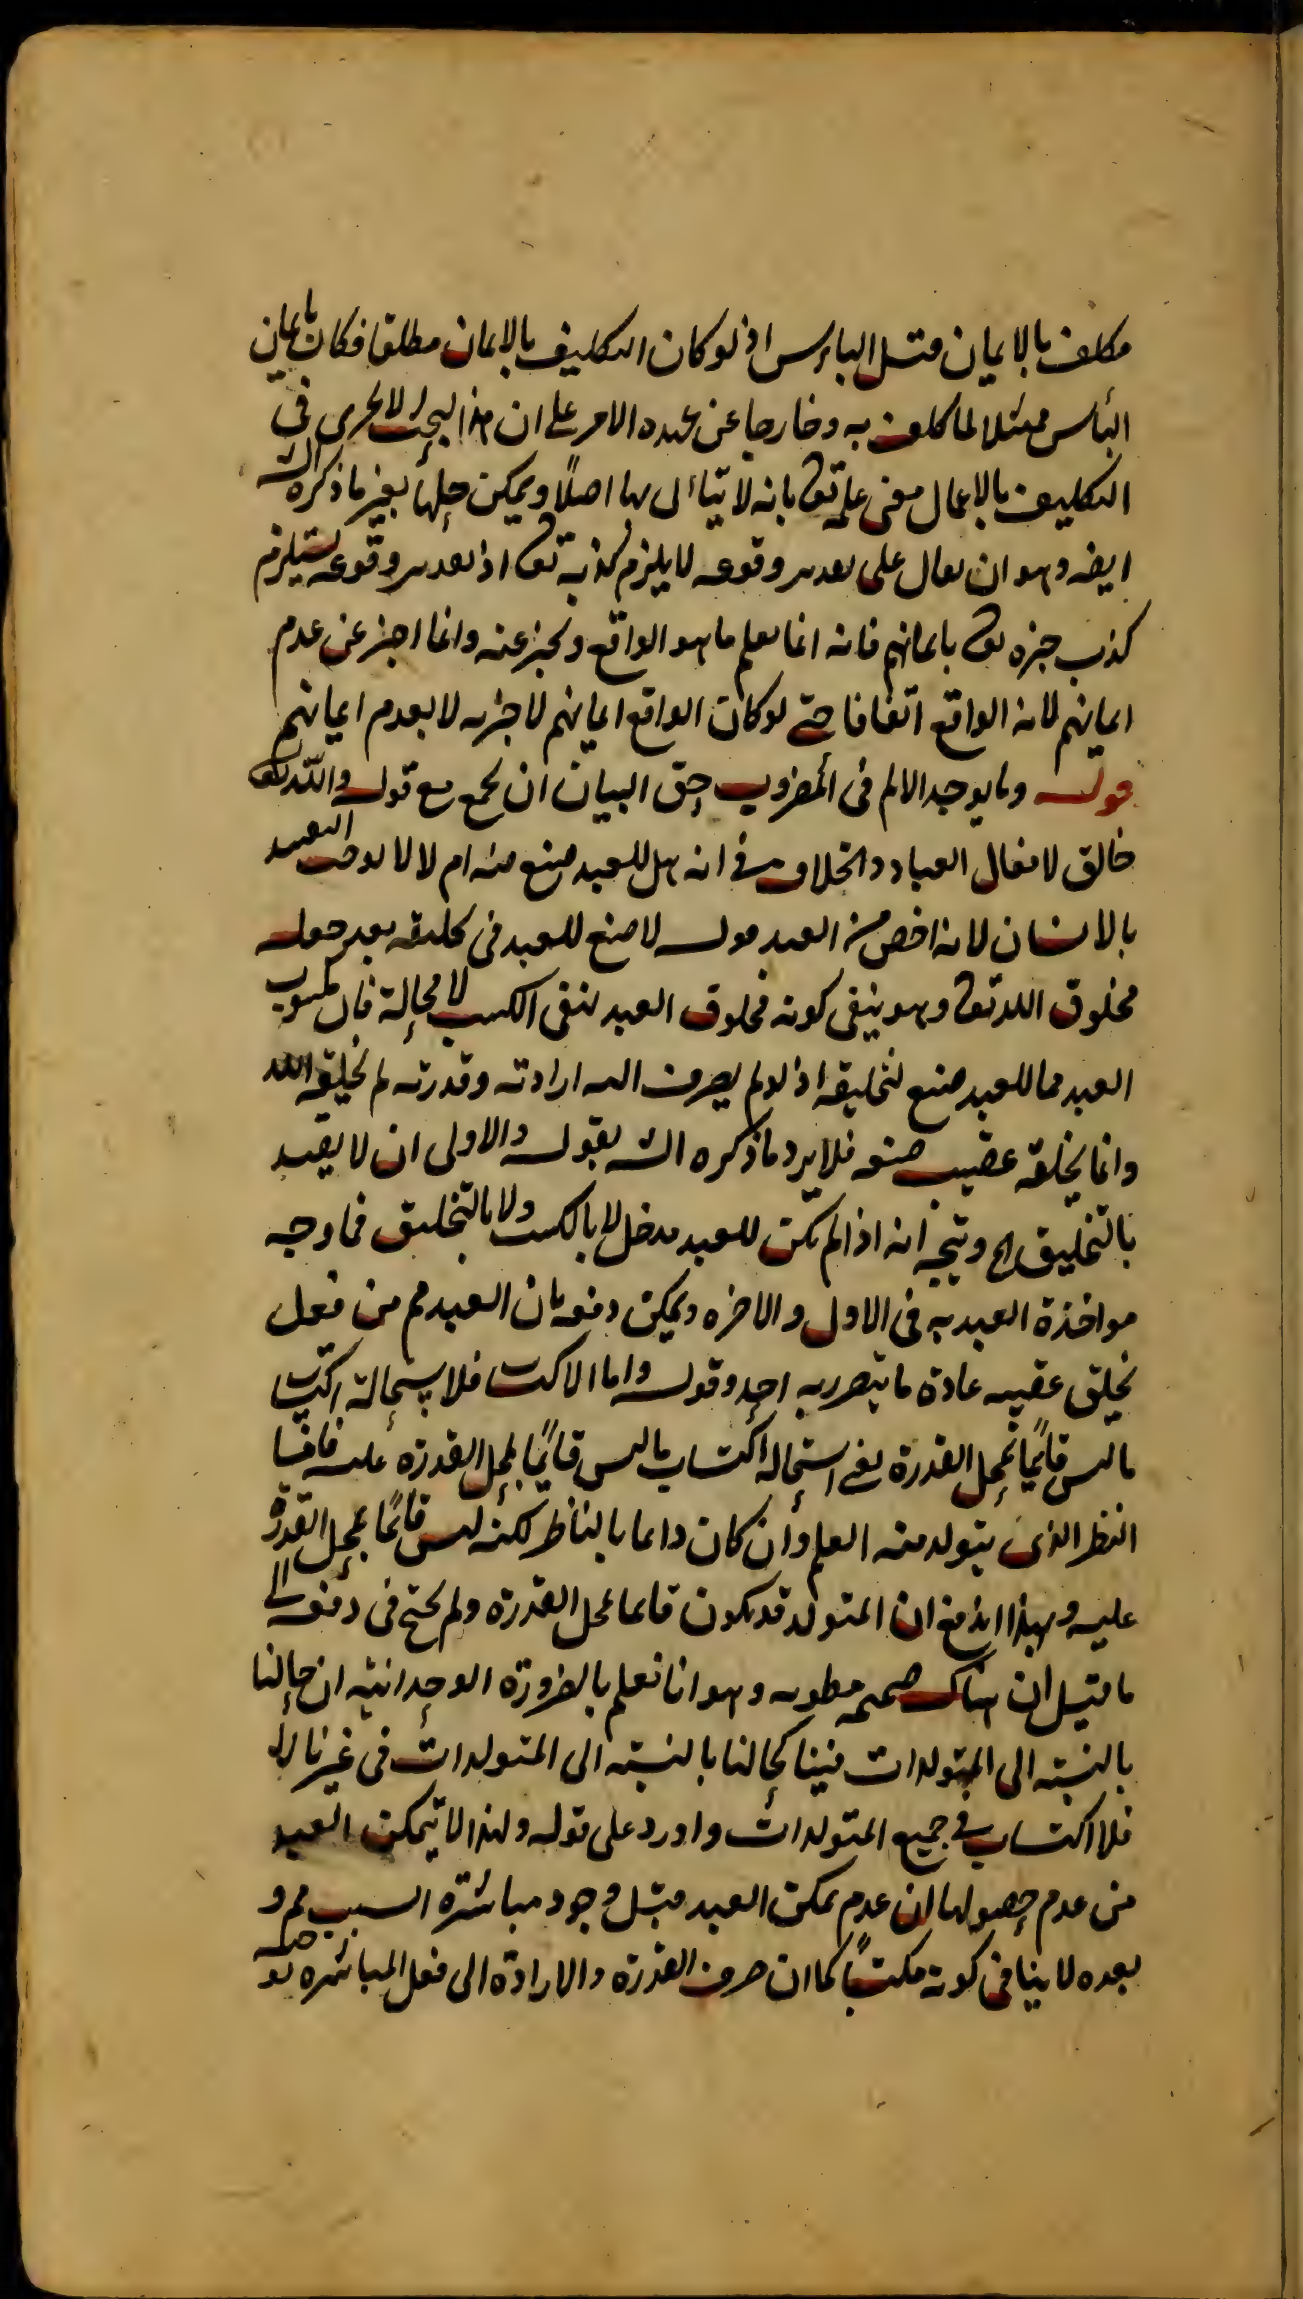 مكلف بالايمان قبل الباس اذ لو كان التكليف بالايمان مطلقا فكان بايمان
الباس ممتثلا لما كلف به وخارجا عن عهده الامر على ان هذا البحث لا يجرى فى
التكليف بالاعمال معنى علمه تع بانه لا اصلًا ويمكن حلها بغير ما ذكره الش
ايضه وهو ان يقال على تقدير وقوعه لا يلزم كذبه تع اذ تقدير وقوعه يستلزم
كذب خبره تع بايمانهم فانه انما يعلم ما هو الواقع ويخبر عنه وانما اخبر عن عدم
ايمانهم لانه الواقع اتفاقا حتى لو كان الواقع ايمانهم لاخبر به لا بعدم ايمانهم
قوله وما يوجد الالم فى المضروب حق البيان ان يجمع مع قوله والله تع
خالق لافعال العباد والخلاف فى انه هل للعبد صنع منه ام لا لا يوجب التقييد
بالانسان لانه اخص من العبد قوله لا صنع للعبد فى تخليقه بعد جعله
مخلوق الله تع وهو ينفى كونه مخلوق العبد لنفى الكسب لا محالة فان مكسوب
العبد مما للعبد صنع لتخليقه اذ لو لم يصرف اليه ارادته وقدرته لم يخلقه الله
وانما يخلقه عقيب صنعه فلا يرد ما ذكره الش بقوله والاولى ان لا يقيد
بالتخليق اه ويتجه انه اذا لم يكن للعبد مدخل لا بالكسب ولا بالتخليق فما وجه
مواخذة العبد به فى الاولى والاخره ويمكن دفعه بان العبد من فعل
يخلق عقيبه عادة ما يتضرر به احد وقوله واما الاكتساب فلاستحالة اكتساب
ما ليس قائمًا بمحل القدرة يعنى استحاله اكتساب ما ليس قائمًا بمحل القدرة عليه
النظر الذى يتولد منه العلم وان كان دائما بالناظر لكنه ليس قائمًا بمحل القدرة
عليه وبهذا اندفع ان المتولد قد يكون قائما بمحل القدرة ولم يحتج فى دفعه الى
ما قيل ان هناك مطويه وهو انا نعلم بالضرورة الوجدانيه ان حالنا
بالنسبه الى المتولدات فينا كحالنا بالنسبه الى المتولدات فى غيرنا
فلا اكتساب فى جميع المتولدات واورد على قوله ولهذا لا يتمكن العبد
من عدم حصولها ان عدم تمكن العبد قبل وجود مباشرة السبب مم و
بعده لا ينافى كونه مكتسبًا كما ان صرف القدرة والارادة الى فعل المباشره